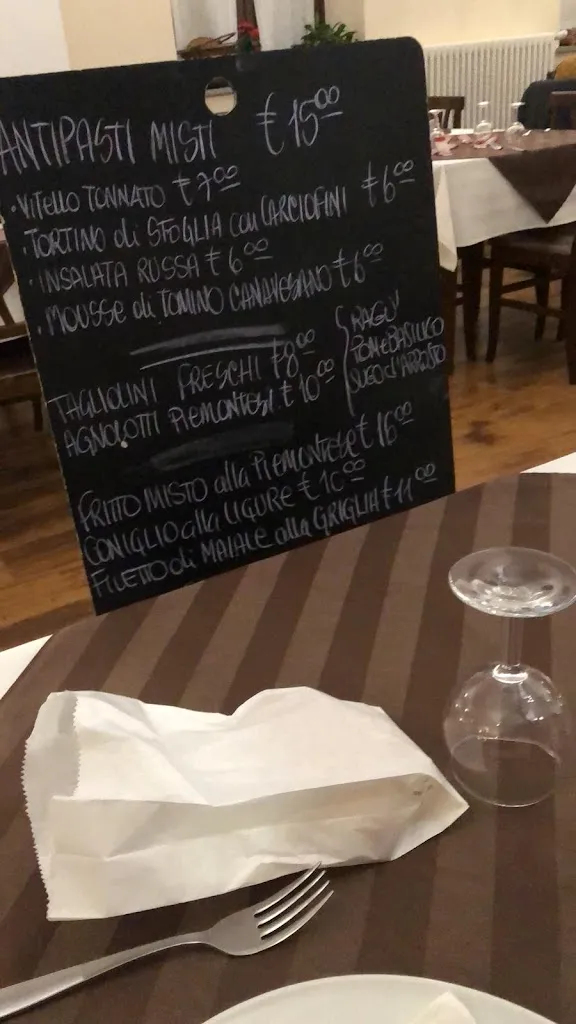 ANTIPASTI MISTI €15⁰⁰
• VITELLO TONNATO €7⁰⁰
• TORTINO di SFOGLIA con CARCIOFINI €6⁰⁰
• INSALATA RUSSA €6⁰⁰
• MOUSSE di TOMINO CANAVESANO €6⁰⁰
TAGLIOLINI FRESCHI €8⁰⁰
AGNOLOTTI PIEMONTESI €10⁰⁰
RAGÙ
POM e BASILICO
SUGO d'ARROSTO
FRITTO MISTO alla PIEMONTESE € 16⁰⁰
CONIGLIO alla LIGURE € 10⁰⁰
FILETTO di MAIALE alla GRIGLIA € 11⁰⁰